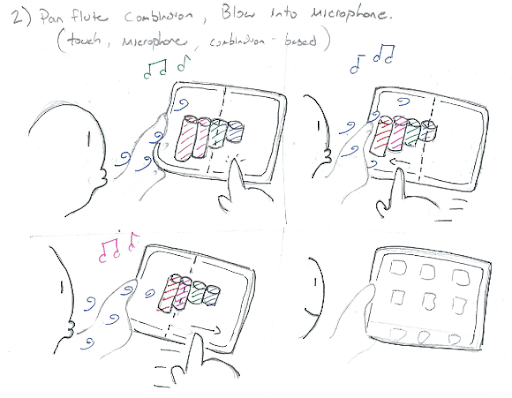 2) Pan flute Combination, Blow into Microphone.
(touch, Microphone, combination-based)